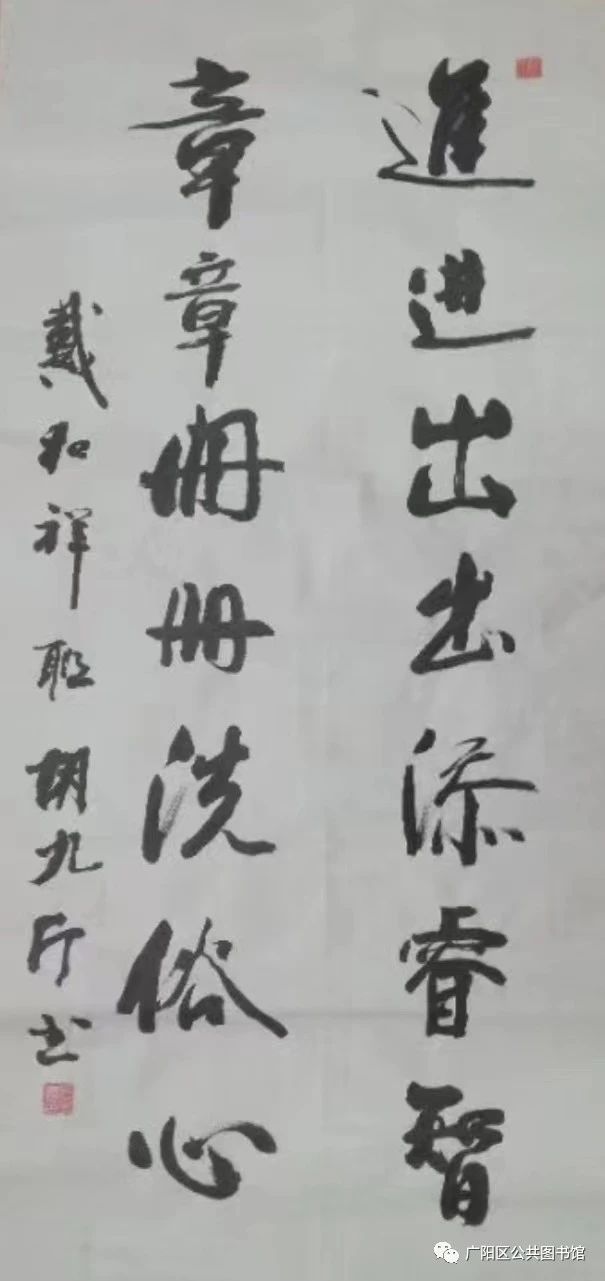 進进出出添睿智
章章冊册洗俗心
戴和祥联 胡九行书
广阳区公共图书馆